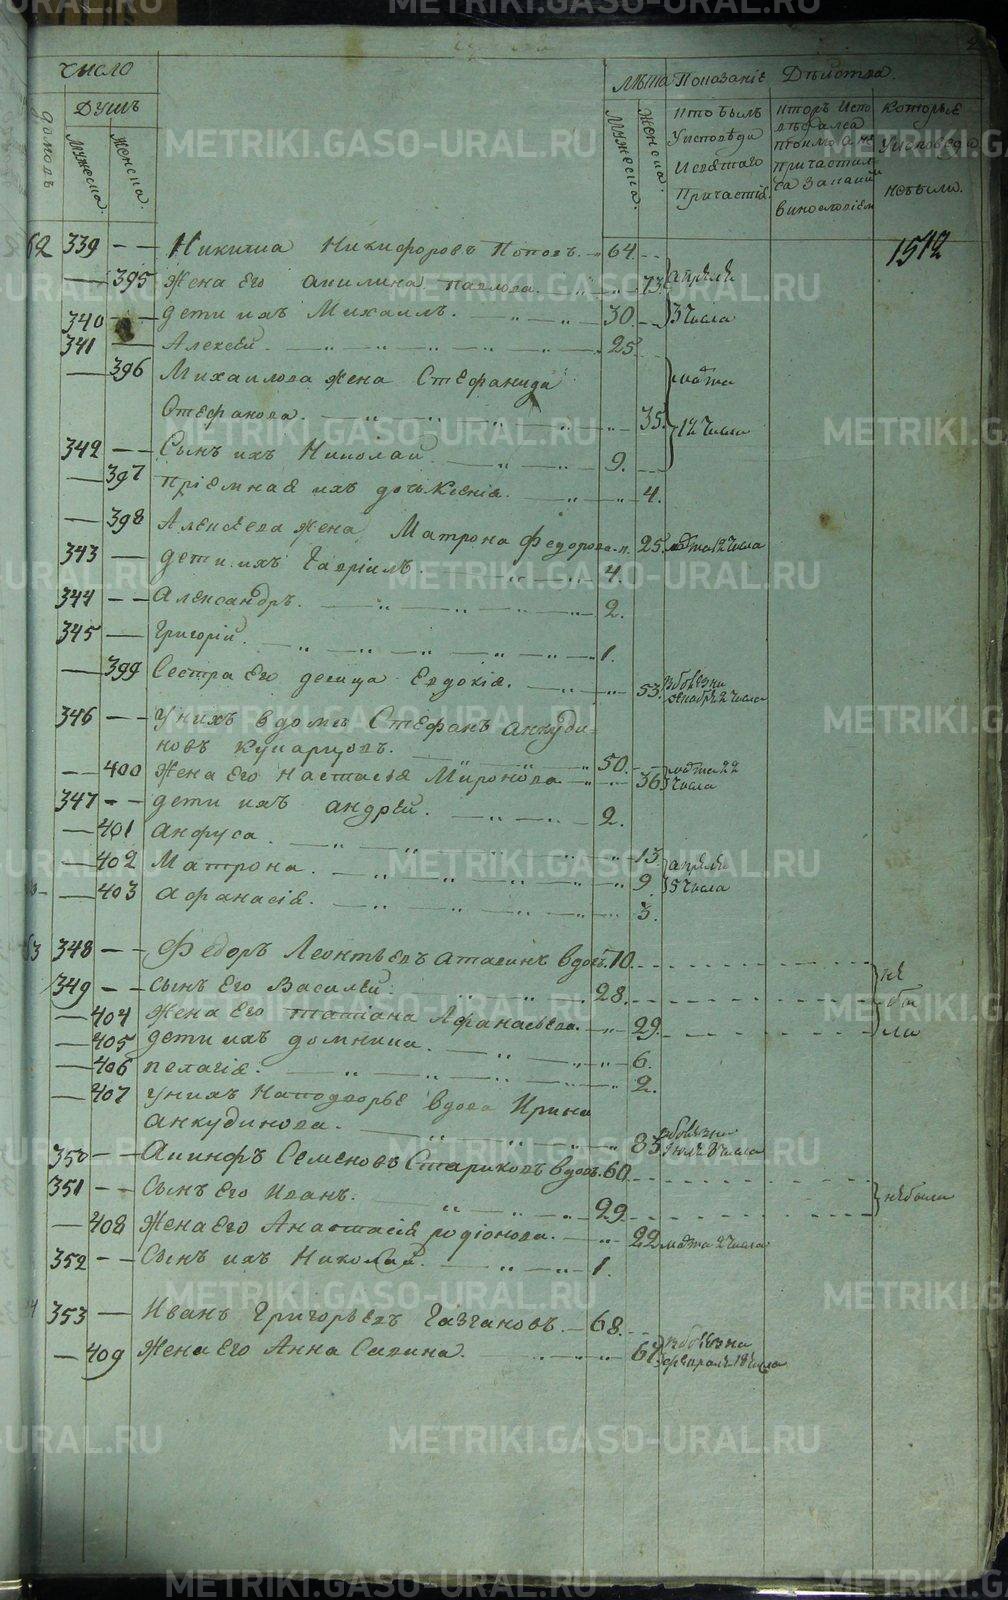 Число
Лѣта Показаніе Дѣйства.
Душъ
домовъ
Мужеска.
Женска.
Мужеска.
Женска.
Кто былъ
Уисповѣди
Исвятаго
Причастія.
Кторъ Испо
вѣдался
Которые
Уисповѣди
небыли.
1512
62 339 — Никита Никифоровъ Поповъ. 64.
— 395 Жена Его Акилина павлова. 73. апрѣля
340 — дети ихъ Михаилъ. 30. 3 Числа
341 — Алексѣй. 25
— 396 Михаилова жена Стефанида марта
Стефанова. 35. 12 Числа
342 — Сынъ ихъ Николай 9.
— 397 пріемная ихъ дочь Ксенія. 4.
— 398 Алексѣева жена Матрона Федорова. 25. марта 12 Числа
343 — дети ихъ Гавріилъ. 4.
344 — Александръ. 2.
345 — Григорій. 1.
— 399 Сестра Его девица Евдокія. 53. вболѣзни
декабря 2 Числа
346 — Унихъ вдомѣ Стефанъ анкуди-
новъ Купарцовъ. 50.
— 400 Жена Его настасія Миронова 36 марта 22
Числа
347 — дети ихъ андрѣй. 2.
— 401 анфуса 13.
— 402 Матрона. 9. апрѣля
5 Числа
— 403 афанасія. 3.
63 348 — Федоръ Леонтьевъ аталинъ вдовъ. 70.
349 — сынъ Его Василѣй. 28. не
бы
ли
— 404 жена Его татіана Афанасьева. 29.
— 405 дети ихъ домника. 6.
— 406 пелагія. 2.
— 407 унихъ Наподворье вдова Ирина
анкудинова. 85. вболѣзни
350 — Акинфъ Семеновъ Стариковъ вдовъ. 60.
351 — Сынъ Его Иванъ. 29. небыли
— 408 Жена Его Анастасія родіонова. 22 марта 2 Числа
352 — Сынъ ихъ Николай. 1.
353 — Иванъ Григорьевъ Газгановъ. 68.
— 409 Жена Его Анна Савина. 67 вболѣзни
февраля 18 Числа
METRIKI.GASO-URAL.RU